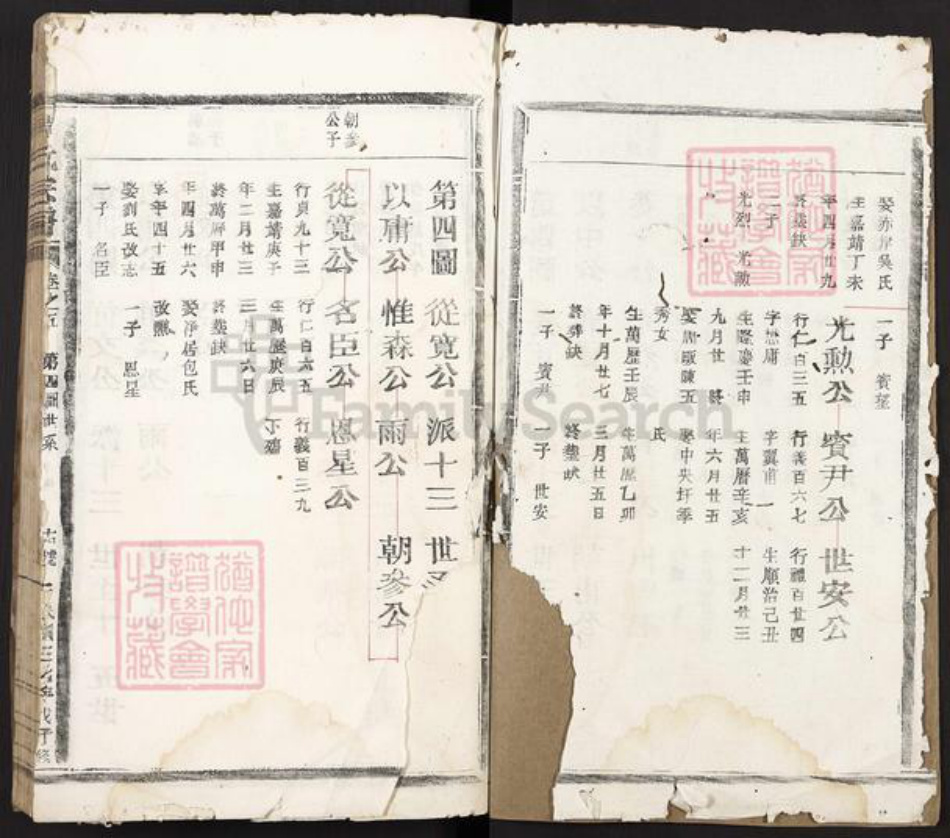 娶赤岸吳氏 一子 賓望
生嘉靖丁未
年四月廿九
終塟缺
二子
光烈 光勲
光勲公 賓尹公 世安公
行仁百三五 行義百六七 行禮百廿四
字思庸 字翼甫 生順治己丑
生隆慶壬申 生萬曆辛亥 十二月廿三
九月廿 終 年六月廿五
娶 陳五 娶中央圩季
秀女 氏
生萬歷壬辰 生萬歷乙卯
年十月廿七 三月廿五日
終葬缺 終塟缺
一子 賓尹 一子 世安
第四圖 從寬公派十三世
以庸公 惟森公 雨公 朝參公
朝參公子
從寬公 名臣公 恩星公
行貞九十三 行仁百六五 行義百三九
生嘉靖庚子 生萬歷庚辰 下殤
年二月廿三 三月廿六日
終萬曆甲申 終塟缺
年四月廿六 娶淨居包氏
享年四十五 改醮
娶劉氏改志 一子 恩星
一子 名臣
宗譜 卷之五 第四圖世系
猶他家譜學會收藏
猶他家譜學會收藏
FamilySearch